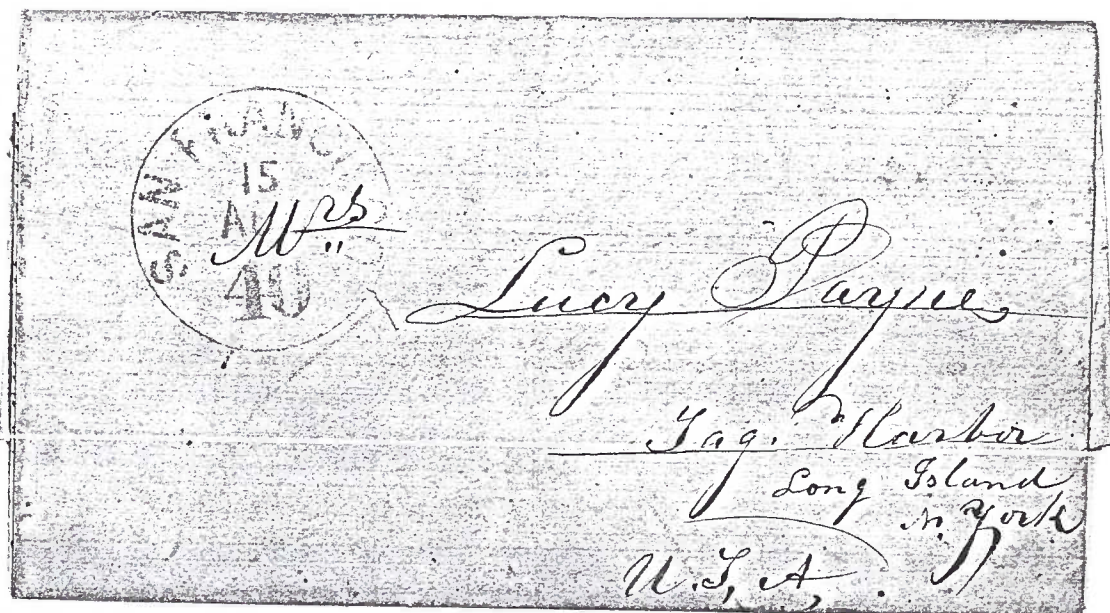 SAN FRANCISCO
15
40
Mrs
Lucy Payne,
Sag. Harbor
Long Island
N. York
U.S,A,